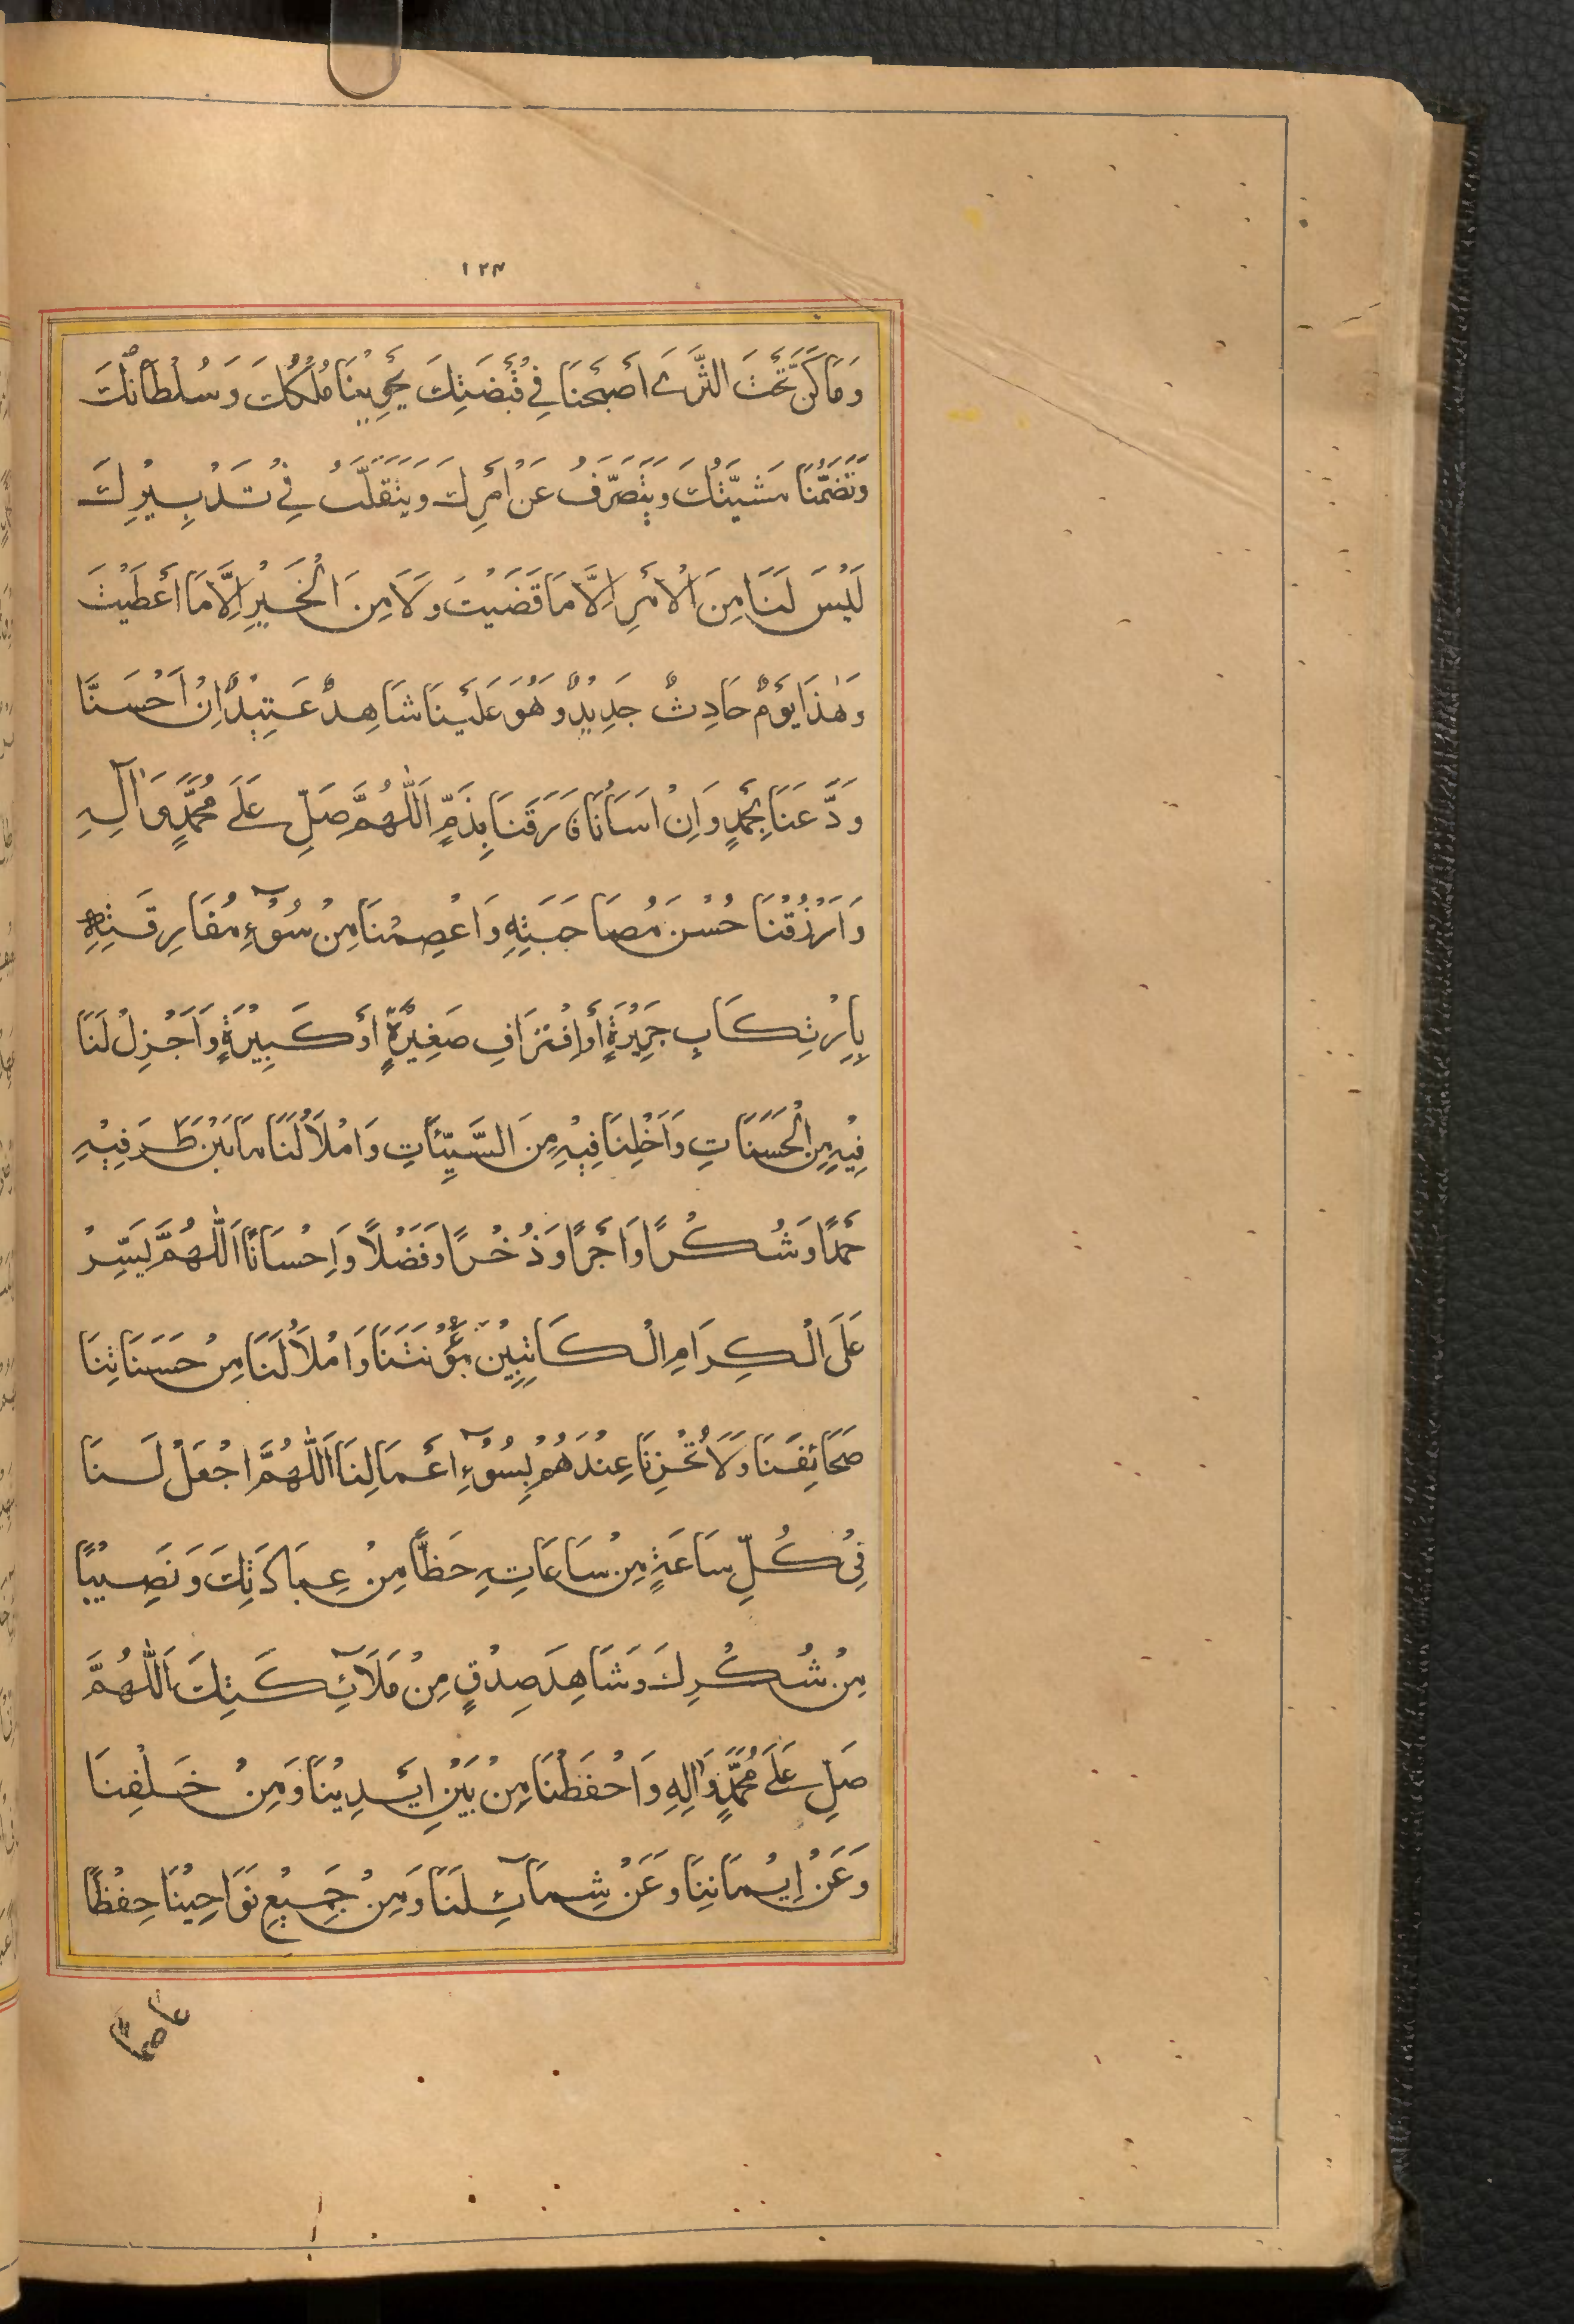 ١٢٣
وَمَا كَنَّ تَحْتَ الثَّرَىٰ أَصْبَحْنَا فِي قُبْضَتِكَ يَحْوِيْنَا مُلْكُكَ وَسُلْطَانُكَ
وَتَضُمُّنَا مَشِيَّتُكَ وَيَتَصَرَّفُ عَنْ اَمْرِكَ وَيَتَقَلَّبُ فِيْ تَدْبِيْرِكَ
لَيْسَ لَنَا مِنَ الْاَمْرِ اِلَّا مَا قَضَيْتَ وَلَا مِنَ الْخَيْرِ اِلَّا مَا اَعْطَيْتَ
وَهٰذَا يَوْمٌ حَادِثٌ جَدِيْدٌ وَهُوَ عَلَيْنَا شَاهِدٌ عَتِيْدٌ اِنْ اَحْسَنَّا
وَدَّعَنَا بِحَمْدٍ وَاِنْ اَسَأْنَا فَارَقَنَا بِذَمٍّ اَللّٰهُمَّ صَلِّ عَلَىٰ مُحَمَّدٍ وَاٰلِهِ
وَارْزُقْنَا حُسْنَ مُصَاحَبَتِهِ وَاعْصِمْنَا مِنْ سُوْٓءِ مُفَارِقَتِهِ
بِاِرْتِكَابِ جَرِيْرَةٍ أَوِ اقْتِرَافِ صَغِيْرَةٍ اَوْ كَبِيْرَةٍ وَاَجْزِلْ لَنَا
فِيْهِ مِنَ الْحَسَنَاتِ وَاَخْلِنَا فِيْهِ مِنَ السَّيِّئَاتِ وَامْلَأْ لَنَا مَا بَيْنَ طَرَفَيْهِ
حَمْدًا وَشُكْرًا وَاَجْرًا وَذُخْرًا وَفَضْلًا وَاِحْسَانًا اَللّٰهُمَّ يَسِّرْ
عَلَى الْكِرَامِ الْكَاتِبِيْنَ مَؤُنَتَنَا وَامْلَأْ لَنَا مِنْ حَسَنَاتِنَا
صَحَائِفَنَا وَلَا تُخْزِنَا عِنْدَهُمْ بِسُوْٓءِ اَعْمَالِنَا اَللّٰهُمَّ اجْعَلْ لَنَا
فِيْ كُلِّ سَاعَةٍ مِنْ سَاعَاتِهِ حَظًّا مِنْ عِبَادَتِكَ وَنَصِيْبًا
مِنْ شُكْرِكَ وَشَاهِدَ صِدْقٍ مِنْ مَلَآئِكَتِكَ اَللّٰهُمَّ
صَلِّ عَلَىٰ مُحَمَّدٍ وَاٰلِهِ وَاحْفَظْنَا مِنْ بَيْنِ اَيْدِيْنَا وَمِنْ خَلْفِنَا
وَعَنْ اِيْمَانِنَا وَعَنْ شِمَآئِلَنَا وَمِنْ جَمِيْعِ نَوَاحِيْنَا حِفْظًا
عاصما